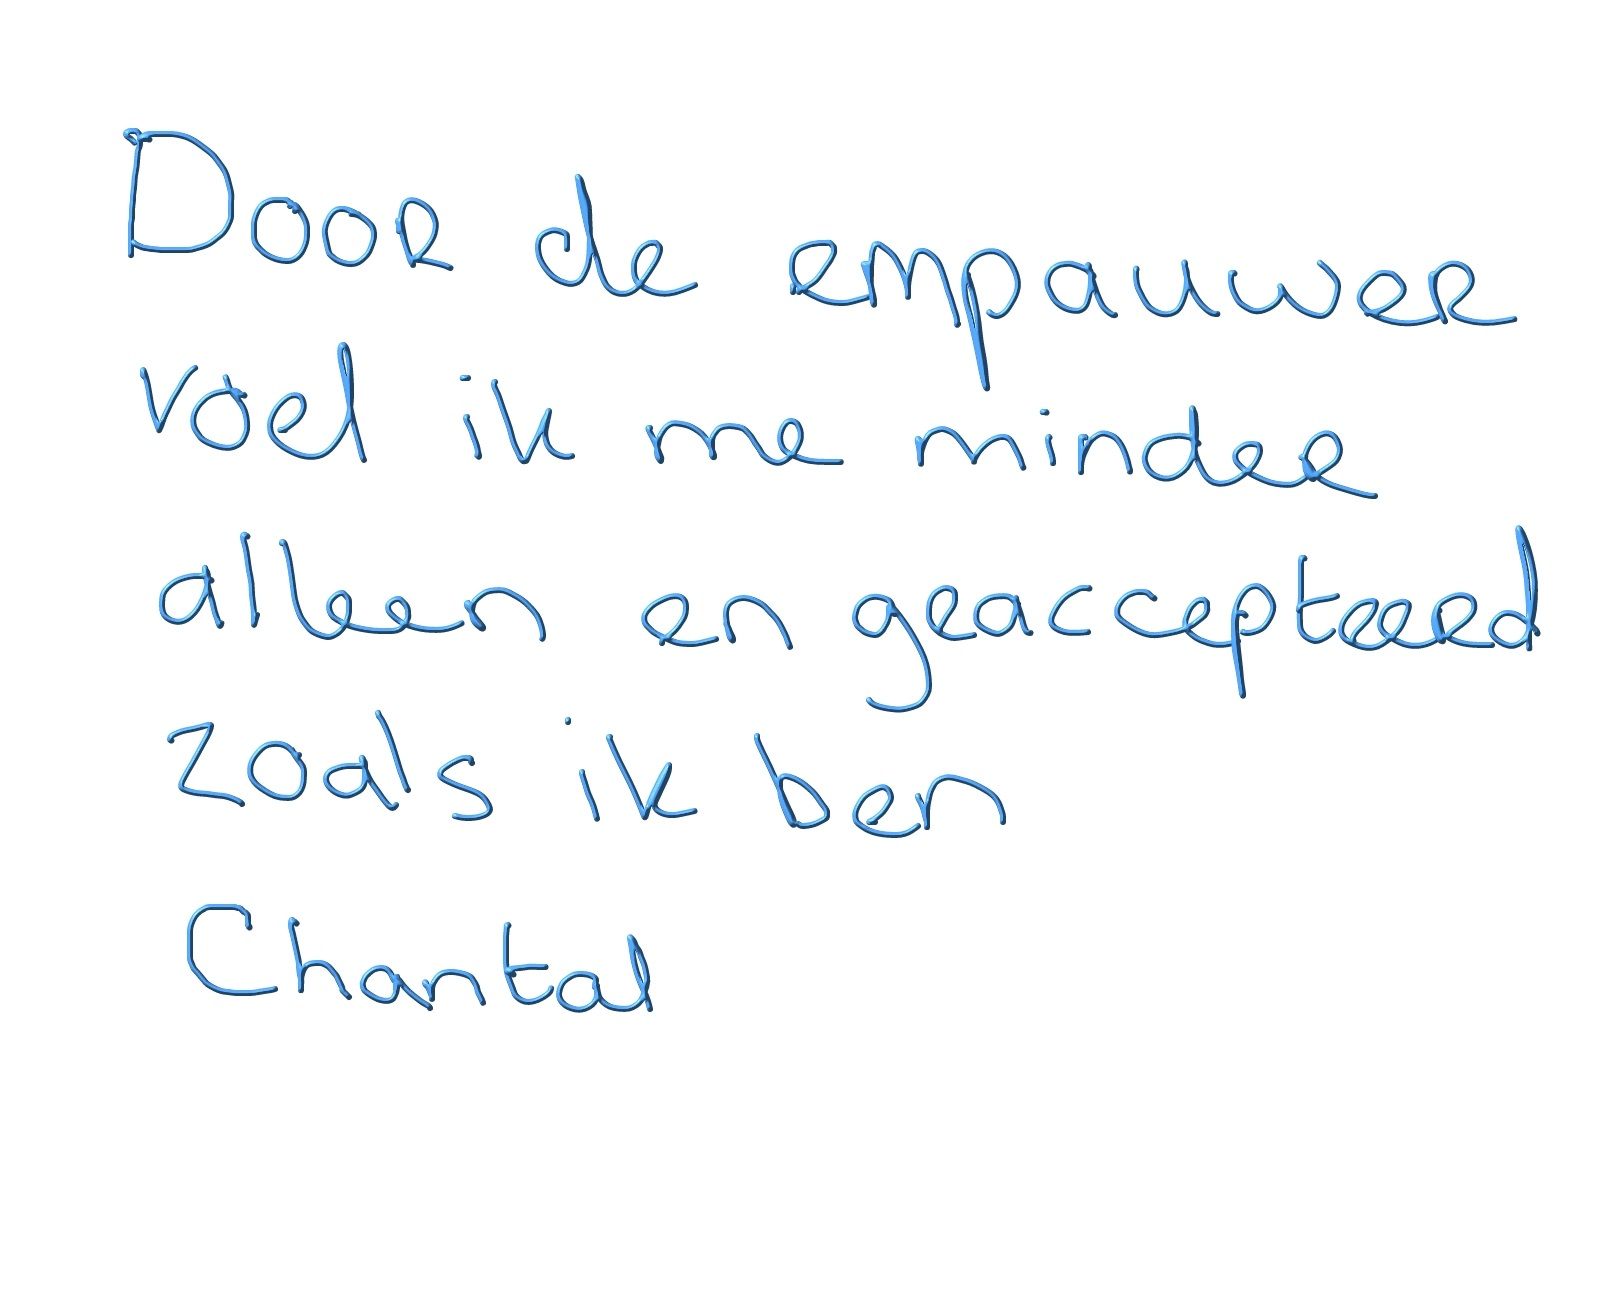 Door de empauwer
voel ik me minder
alleen en geaccepteerd
zoals ik ben
Chantal